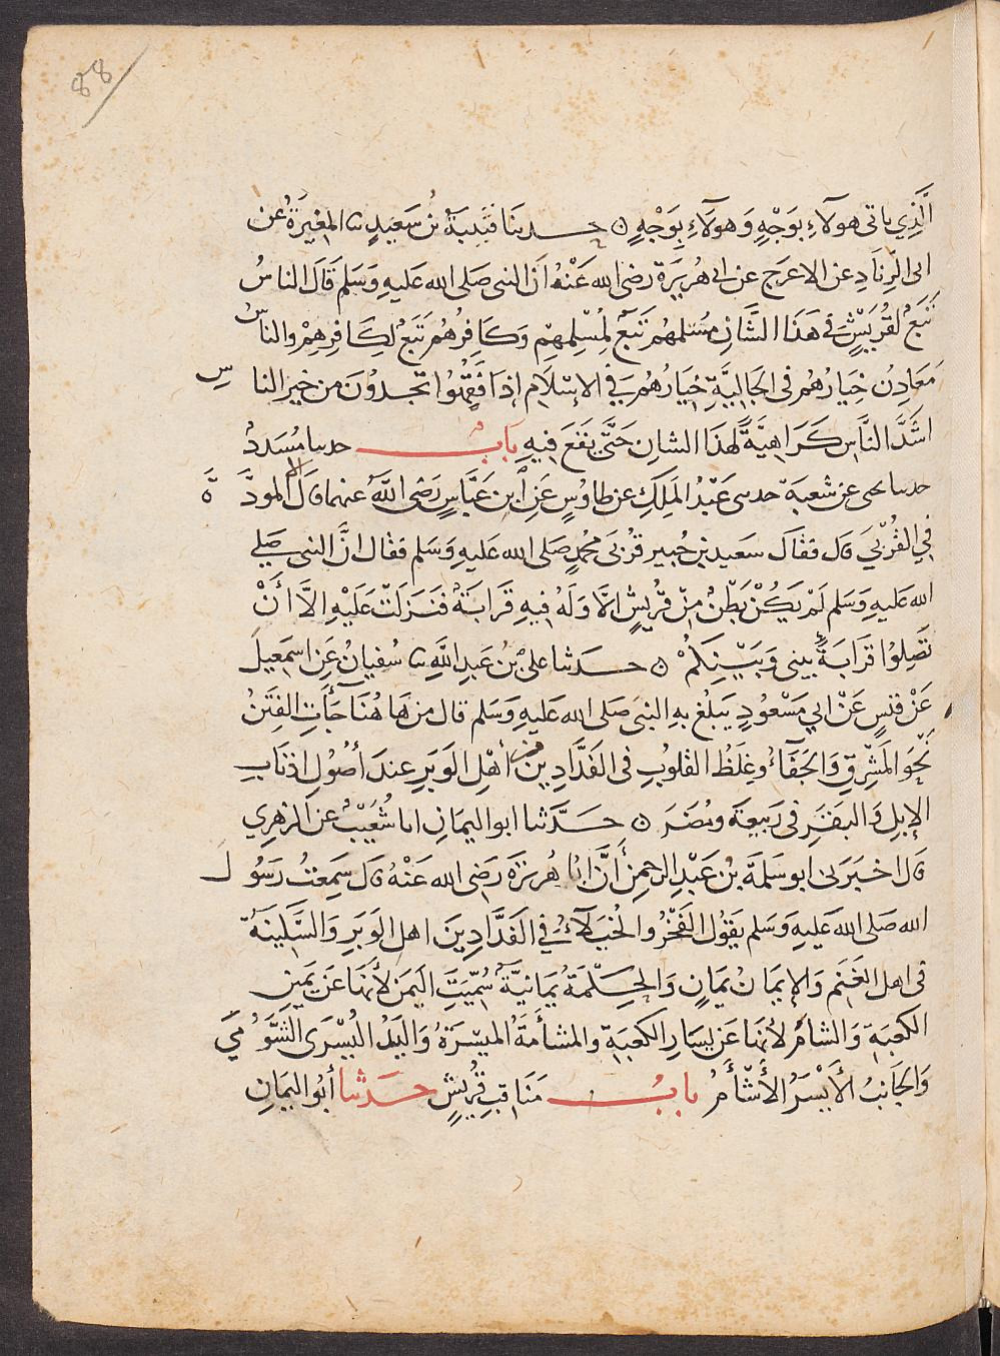 88
الَّذِي ياتى هولآءِ بوَجْهٍ وَهولَآءِ بِوَجْهٍ ۝ حدثنا قتيبَةُ بنُ سَعيدٍ نا المغيرَةُ عن
ابى الزِّنادِ عن الاعرَج عن ابى هُريرَة رضى الله عَنْهُ اَنَّ النبى صَلى الله عَليهِ وَسَلم قَالَ الناسُ
تَبَعٌ لقُرَيْشٍ فى هَذَا الشَّانِ مُسْلمهُم تَبَعٌ لمُسْلِمِهِم وَكَافرُهُم تَبَعٌ لكَافِرِهِمْ والناسُ
مَعَادِنُ خِيَارُهُم فى الجَاهِليَّةِ خِيَارُهُم فى الاِسْلَامِ إذَا فَقُهُوا تجدوُنَ من خيرِ الناسِ
اشَدَّ النَّاسِ كَرَاهِيَةً لهذَا الشانِ حَتَّى يَقَعَ فيهِ بَابٌ حدثنا مُسَدَّدٌ
حدثنا يحيى عن شعبَة حدثنى عَبْدُ المَلِكِ عن طاوُسٍ عَنِ ابنِ عَبَّاسٍ رَضى اللهُ عنهما قال الا المودَّةَ
فِي القُرْبَى قال فقَالَ سَعيد بن جُبير قرْبَى مُحمدٍ صَلى الله عَليهِ وَسَلم فقال انَّ النبى صَلى
الله عَليهِ وَسَلم لَمْ يَكُنْ بَطْنٌ مِنْ قرَيشٍ الا وَلَهُ فيهِ قَرَابَةٌ فنَزَلَتْ عَلَيْهِ الَّا أَنْ
تَصِلوُا قرَابَةً بينى وَبَيْنِكُمْ ۝ حَدثنا على بنُ عَبدِ اللَّهِ نا سُفيانُ عَنِ اسمَعِيلَ
عَنْ قيسٍ عَنْ ابي مَسْعُودٍ يَبلُغ بهِ النبىَ صَلى الله عَليهِ وَسَلم قال من هَا هُنَا جَآءَتِ الفِتَنُ
نَحْوَ المَشرِقِ وَالجَفَآءُ وغِلَظُ القلوُبِ فى الفَدَّادِينَ من اَهْلِ الوَبَرِ عِندَ أصُولِ اذنَابِ
الإبِلِ وَالبقَرِ فى رَبيعَةَ ومُضَرَ ۝ حدَّثنا ابو اليمَانِ انا شُعَيْبٌ عن الزهرِي
قال اخبَرَنى ابو سَلمَةَ بنُ عَبْدِ الرحمنِ أنَّ ابَا هُرَيْرَةَ رَضِىَ الله عَنْهُ قال سَمِعْتُ رَسُولَ
الله صَلى الله عَليهِ وَسَلم يقوُل الفَخْرُ والخيَلَآءُ في الفَدَّادِينَ اهل الوَبَرِ وَالسَّكِينَةُ
فى اهل الغَنَمِ وَالإيمَانُ يَمَانٍ وَالحِكْمَةُ يَمَانِيَّةٌ سُمِّيَتِ اليَمَن لأنهَا عَن يَمِينِ
الكعبَةِ وَالشامُ لانهَا عَن يسَارِ الكعبَةِ والمشأَمَةُ الميْسَرَةُ وَاليَدُ اليُسْرَى الشُّوْمَى
وَالجَانِبُ الأَيْسَرُ الأَشْأَمُ بابُ مَنَاقِبِ قُرَيشٍ حَدَثنا أبُو اليمَانِ